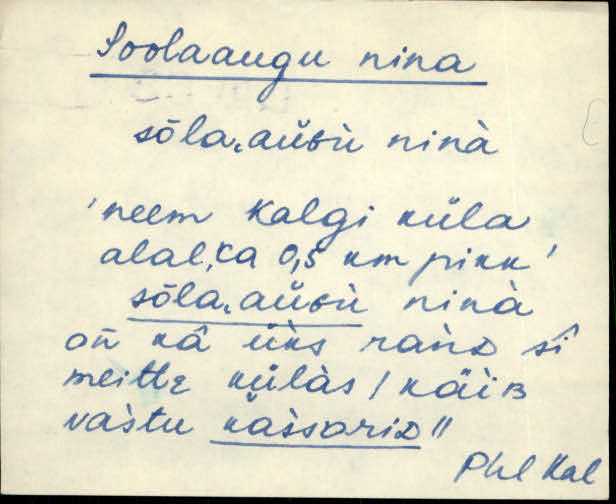 Soolaaugu nina
sōla‚aŭɢù ninà
'neem Kalgi küla
alal, ca 0,5 km pikk'
sōla‚aŭɢù ninà
oǹ kâ üks raǹᴅ sî
meitte külàs / käìʙ
vastu kàssariᴅ //
Phl Kal